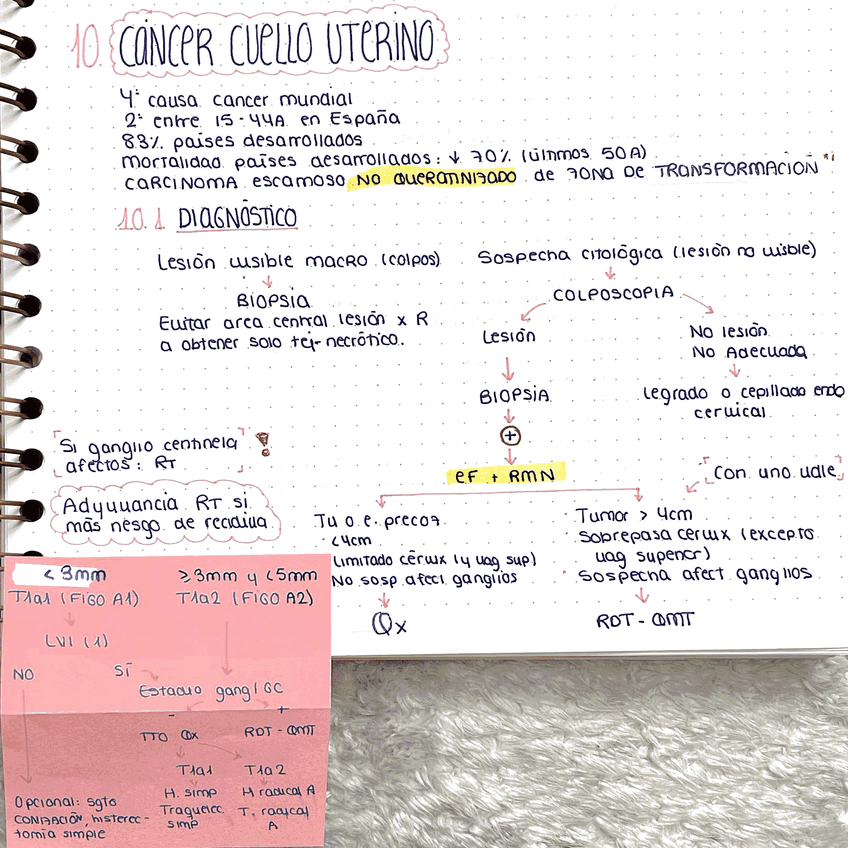 10. CÁNCER CUELLO UTERINO
4ª causa cancer mundial
2ª entre 15-44A en España
83% países desarrollados
mortalidad países desarrollados: ↓ 70% (últimos 50A)
CARCINOMA escamoso NO QUERATINIZADO de ZONA DE TRANSFORMACIÓN
10.1 DIAGNÓSTICO
Lesión visible macro (colpos)
↓
BIOPSIA
Evitar area central lesión x R
a obtener solo tej. necrótico.
Sospecha citológica (lesión no visible)
↓
COLPOSCOPIA
Lesión
↓
BIOPSIA
↓
⊕
↓
EF + RMN
No lesión
No Adecuada
↓
Legrado o cepillado endo
cervical
Si ganglio centinela
afectos: RT
!
Adyuvancia RT si
más riesgo de recidiva
Con uno vale
Tu o.e. precoz
<4cm
Limitado cérvix (y vag sup)
No sosp. afect. ganglios
↓
Qx
Tumor > 4cm
Sobrepasa cervix (excepto
vag superior)
Sospecha afect. ganglios
↓
RDT - QMT
< 3mm
T1a1 (FIGO A1)
↓
LVI (1)
NO
SÍ
≥3mm y <5mm
T1a2 (FIGO A2)
Estadio gangl GC
-
+
TTO Qx
RDT - QMT
T1a1
H. simp
Traquelec.
simp
T1a2
H radical A
T. radical
A
Opcional: sgto
CONIZACIÓN, histerec-
tomía simple